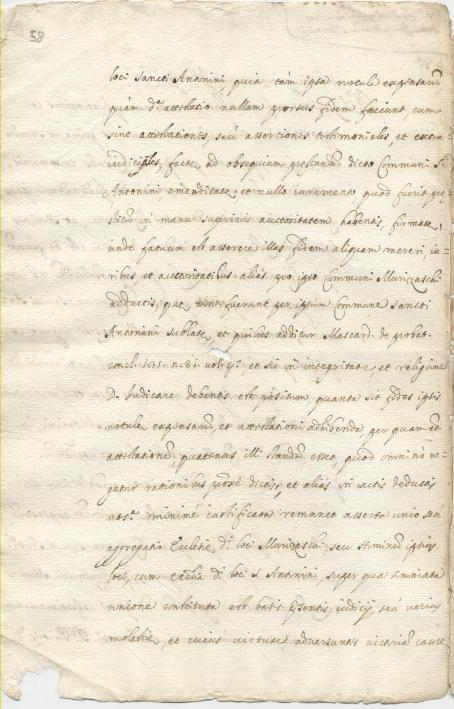 82
loci Sancti Antonini, quia tàm ipsa notula expensarum
quàm dᵃ attestatio nullam prorsus fidem faciunt, cum
sint attestationes, seù assertiones testimoniales, et extra
iudiciales, factæ ad obsequium prestandum dicto Communi Sᵗⁱ
Antonini, emendicatæ, et nullo iuramento quod fuerit pre
stitum in manu superioris auctoritatem habentis, firmatæ,
unde fatuum est asserere illas fidem aliquam mereri, iu=
ribus, et auctoritatibus aliàs pro ipso Communi Murizaschi
adductis, quæ non fuerunt per ipsum Commune Sancti
Antonini sublatæ, et quibus additur Mascard. de probat.
concl. n. 8. vol. et sic in integritate, et religione
D. Iudicare debentis est positum, quanta sit fides ipsis
notulæ expensarum, et attestationi adhibenda, per quam et
attestationem, quatenus illi standum esset, quod omnino ne=
gatur rationibus proxime dictis, et aliàs in actis deductis
minimè iustificata remanet asserta unio seu
aggregatio Ecclesiæ dⁱ loci Murizaschi seu hominum ipsius
loci, cum eccl̃ia dⁱ loci S. Antonini, super qua
unione constituta est basis presentis iudicij, seù verius
molestiæ, et cuius virtute adversantes vicariam